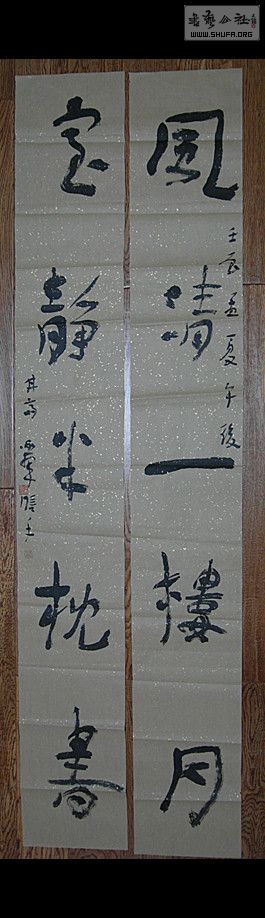 書藝公社
WWW.SHUFA.ORG
風清一樓月
壬辰孟夏午後
室靜半枕書